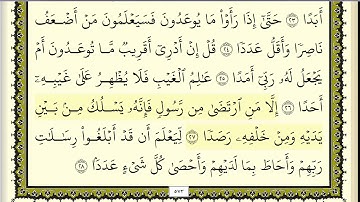 أَبَدًا ٢٣ حَتَّىٰٓ إِذَا رَأَوْا۟ مَا يُوعَدُونَ فَسَيَعْلَمُونَ مَنْ أَضْعَفُ
نَاصِرًا وَأَقَلُّ عَدَدًا ٢٤ قُلْ إِنْ أَدْرِىٓ أَقَرِيبٌ مَّا تُوعَدُونَ أَمْ
يَجْعَلُ لَهُۥ رَبِّىٓ أَمَدًا ٢٥ عَٰلِمُ ٱلْغَيْبِ فَلَا يُظْهِرُ عَلَىٰ غَيْبِهِۦٓ
أَحَدًا ٢٦ إِلَّا مَنِ ٱرْتَضَىٰ مِن رَّسُولٍ فَإِنَّهُۥ يَسْلُكُ مِنۢ بَيْنِ
يَدَيْهِ وَمِنْ خَلْفِهِۦ رَصَدًا ٢٧ لِّيَعْلَمَ أَن قَدْ أَبْلَغُوا۟ رِسَٰلَٰتِ
رَبِّهِمْ وَأَحَاطَ بِمَا لَدَيْهِمْ وَأَحْصَىٰ كُلَّ شَىْءٍ عَدَدًۢا ٢٨
٥٧٣